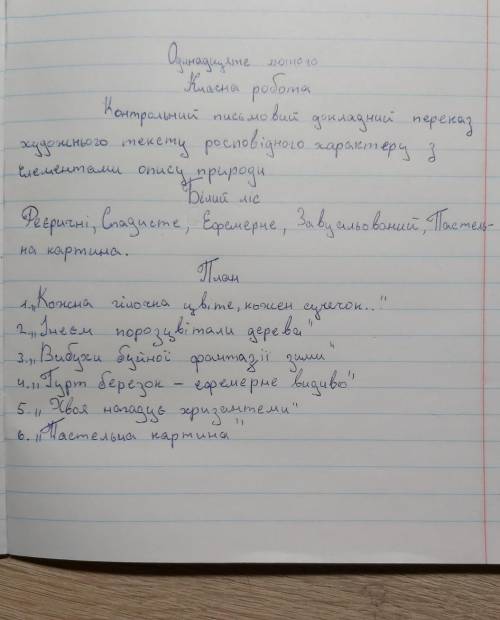 Одинадцяте лютого
Класна робота
Контрольний письмовий докладний переказ
художнього тексту росповідного характеру з
елементами опису природи
Білий ліс
Феєричні, Спадисте, Ефемерне, Завуальований, Пастель-
на картина.
План
1. „Кожна гілочка цвіте, кожен сучечок.."
2. „Інеєм порозцвітали дерева"
3. „Вибухи буйної фантазії зими"
4. „Гурт березок – ефемерне видиво"
5. „Хвоя нагадує хризантеми"
6. „Пастельна картина"